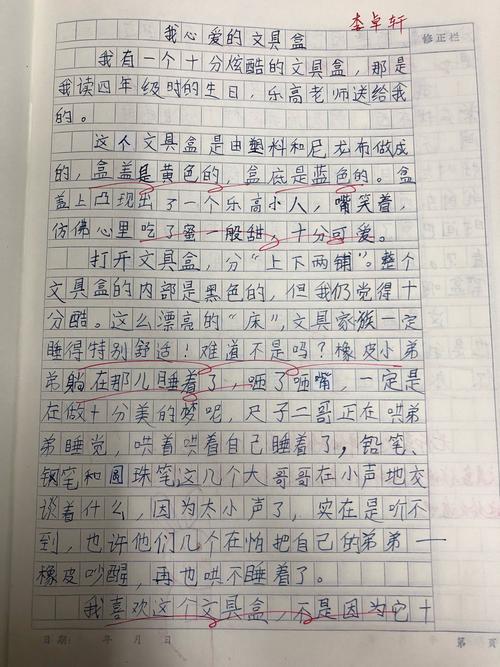 李卓轩
我心爱的文具盒
修正栏
我有一个十分炫酷的文具盒，那是
我读四年级时的生日，乐高老师送给我
的。
这个文具盒是由塑料和尼龙布做成
的，盒盖是黄色的，盒底是蓝色的。盒
盖上凸现出了一个乐高小人，嘴笑着，
仿佛心里吃了蜜一般甜，十分可爱。
打开文具盒，分“上下两铺”。整个
文具盒的内部是黑色的，但我仍觉得十
分酷。这么漂亮的“床”，文具家族一定
睡得特别舒适！难道不是吗？橡皮小弟
弟躺在那儿睡着了，咂了咂嘴，一定是
在做十分美的梦呢，尺子二哥正在哄弟
弟睡觉，哄着哄着自己睡着了，铅笔、
钢笔和圆珠笔这几个大哥哥在小声地交
谈着什么，因为太小声了，实在是听不
到，也许他们几个在怕把自己的弟弟——
橡皮吵醒，再也哄不睡着了。
我喜欢这个文具盒，不是因为它十
日期： 年 月 日 第 页